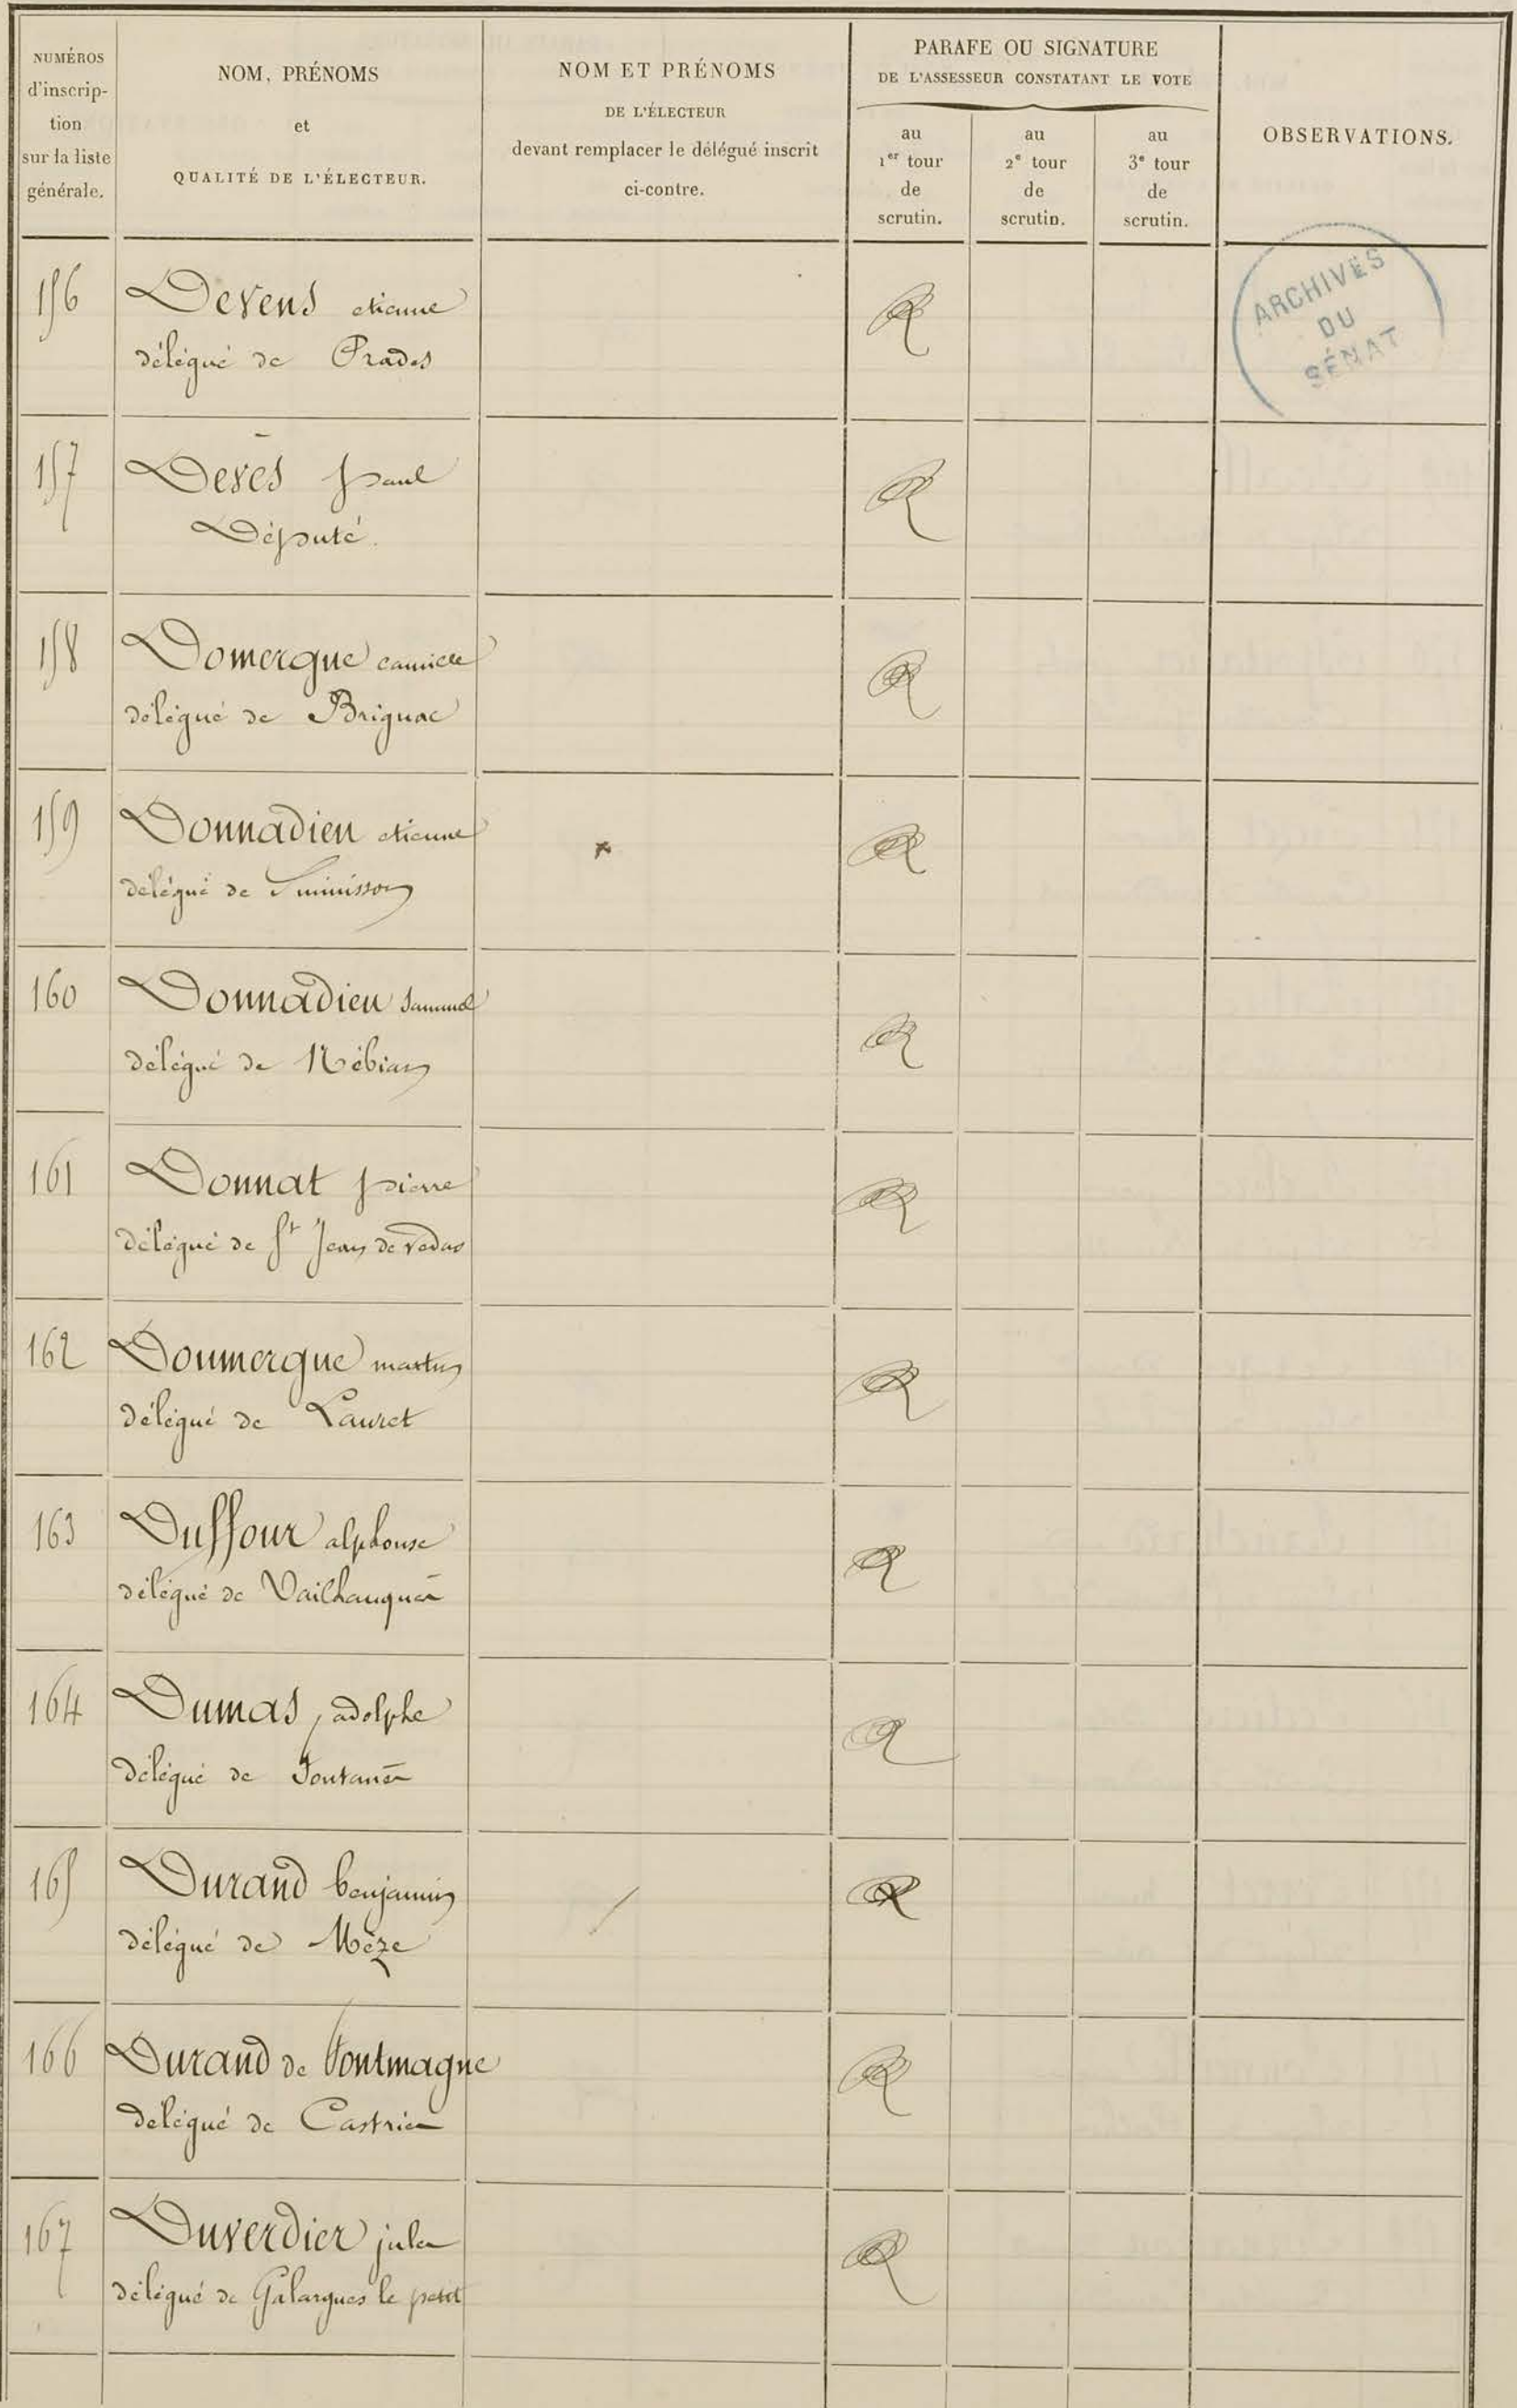 NUMÉROS
d'inscrip-
tion
sur la liste
générale.
NOM, PRÉNOMS
et
QUALITÉ DE L'ÉLECTEUR.
NOM ET PRÉNOMS
DE L'ÉLECTEUR
devant remplacer le délégué inscrit
ci-contre.
PARAFE OU SIGNATURE
DE L'ASSESSEUR CONSTATANT LE VOTE
au
1er tour
de
scrutin.
au
2e tour
de
scrutin.
au
3e tour
de
scrutin.
OBSERVATIONS.
ARCHIVES
DU
SÉNAT
156 Devens etienne
délégué de Prades
157 Devès paul
Député.
158 Domergue camille
délégué de Brignac
159 Donnadieu etienne
délégué de Siminisson
160 Donnadieu Samuel
délégué de Nébian
161 Donnat pierre
délégué de St Jean de Vedas
162 Doumergue martin
délégué de Lauret
163 Duffour alphonse
délégué de Vailhauquès
164 Dumas, adolphe
délégué de Fontanès
165 Durand benjamin
délégué de Mèze
166 Durand de Fontmagne
délégué de Castries
167 Duverdier jules
délégué de Galargues le petit